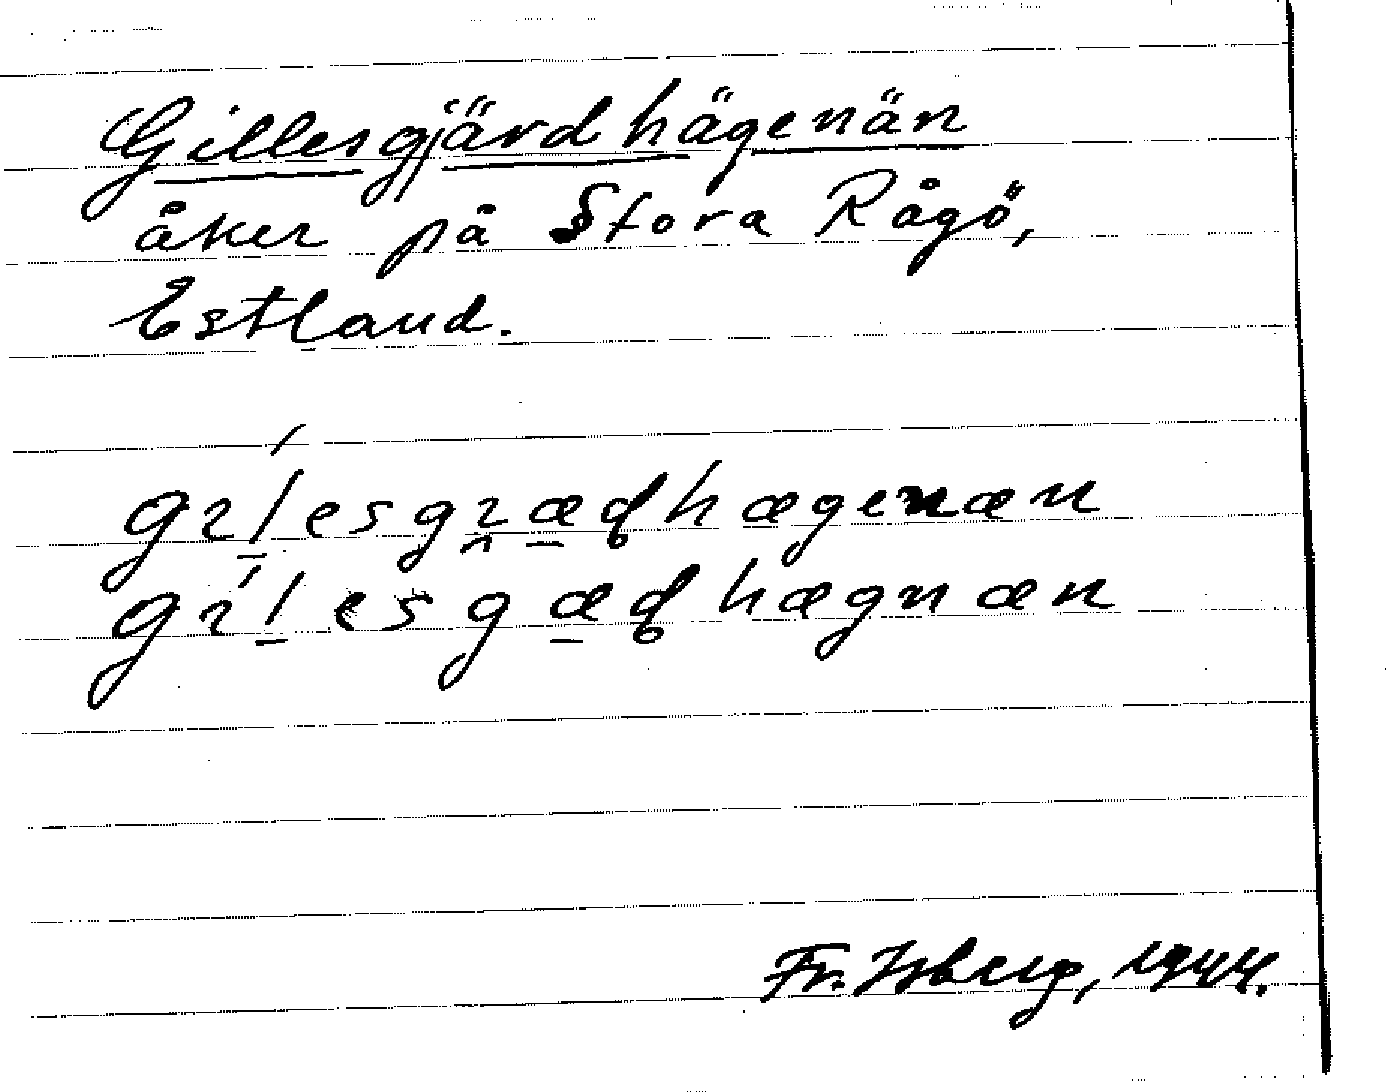 Gillesgjärdhägenän
åker på Stora Rågö,
Estland.
gɪĺesgɪ̯æɖhægenæn
gɪĺesgæɖhægnæn
Fr. Isberg, 1944.